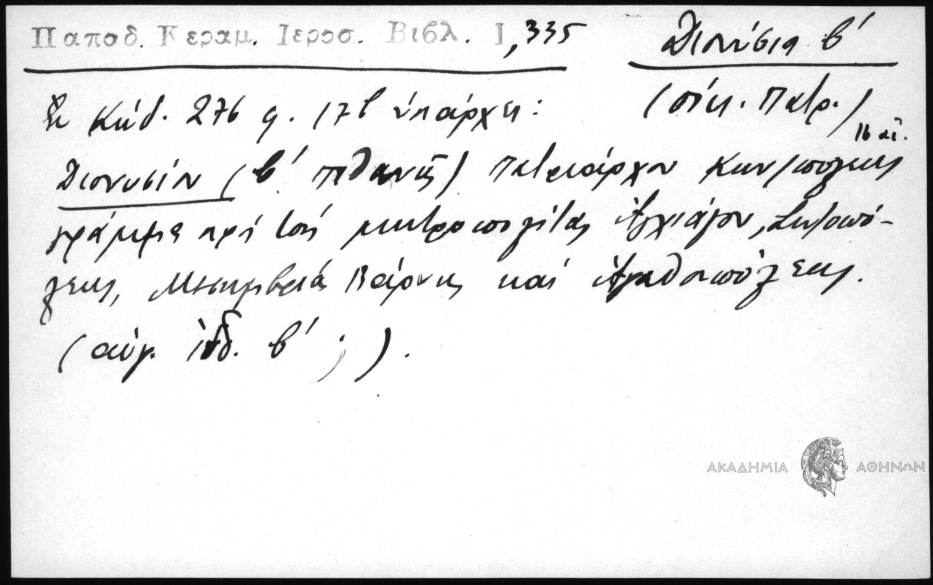 Παπαδ. Κεραμ. Ιεροσ. Βιβλ. Ι, 335
Διονύσιο β΄
(οἰκ. Πατρ.)
Ἐν Κώδ. 276 φ. 17β ὑπάρχει:
16 αἰ.
Διονυσίου (β΄ πιθανῶς) Πατριάρχου Κων/πόλεως
γράμμα πρὸς τοὺς μητροπολίτας Ἀγχιάλου, Σωζοπό-
λεως, Μεσημβρίας Βάρνης καὶ Ἀγαθοπόλεως.
(αὐγ. ἰνδ. β΄ ; ).
ΑΚΑΔΗΜΙΑ ΑΘΗΝΩΝ